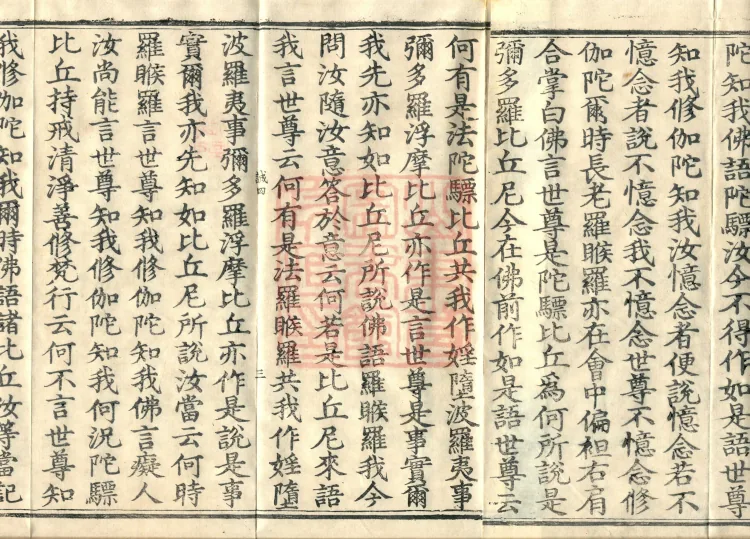 陀知我佛語陀驃汝今不得作如是語世尊
知我修伽陀知我汝憶念者便說憶念若不
憶念者說不憶念我不憶念世尊不憶念修
伽陀爾時長老羅睺羅亦在會中偏袒右肩
合掌白佛言世尊是陀驃比丘為何所說是
彌多羅比丘尼今在佛前作如是語世尊云
何有是法陀驃比丘共我作婬墮波羅夷事
彌多羅浮摩比丘亦作是言世尊是事實爾
我先亦知如比丘尼所說佛語羅睺羅我今
問汝隨汝意答於意云何若是比丘尼來語
我言世尊云何有是法羅睺羅共我作婬墮
三
波羅夷事彌多羅浮摩比丘亦作是說是事
實爾我亦先知如比丘尼所說汝當云何時
羅睺羅言世尊知我修伽陀知我佛言癡人
汝尚能言世尊知我修伽陀知我何況陀驃
比丘持戒清淨善修梵行云何不言世尊知
我修伽陀知我爾時佛語諸比丘汝等當記